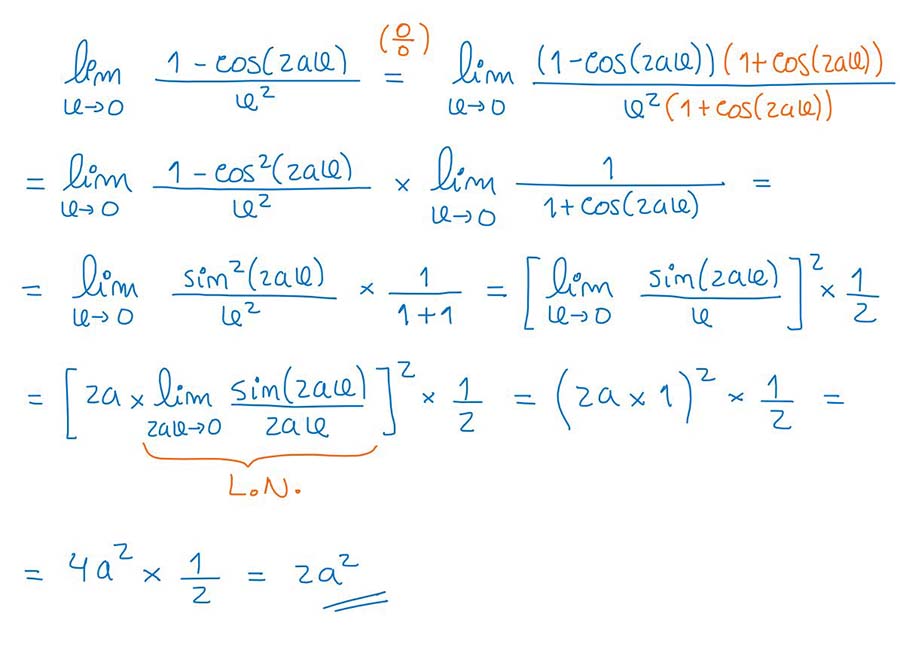 lim u→0 (1 - cos(2au))/u² =(0/0) lim u→0 ((1-cos(2au))(1+cos(2au)))/(u²(1+cos(2au)))
= lim u→0 (1 - cos²(2au))/u² × lim u→0 1/(1+cos(2au)) =
= lim u→0 sin²(2au)/u² × 1/(1+1) = [lim u→0 sin(2au)/u]² × 1/2
= [2a × lim 2au→0 sin(2au)/2au]² × 1/2 = (2a × 1)² × 1/2 =
L.N.
= 4a² × 1/2 = 2a²